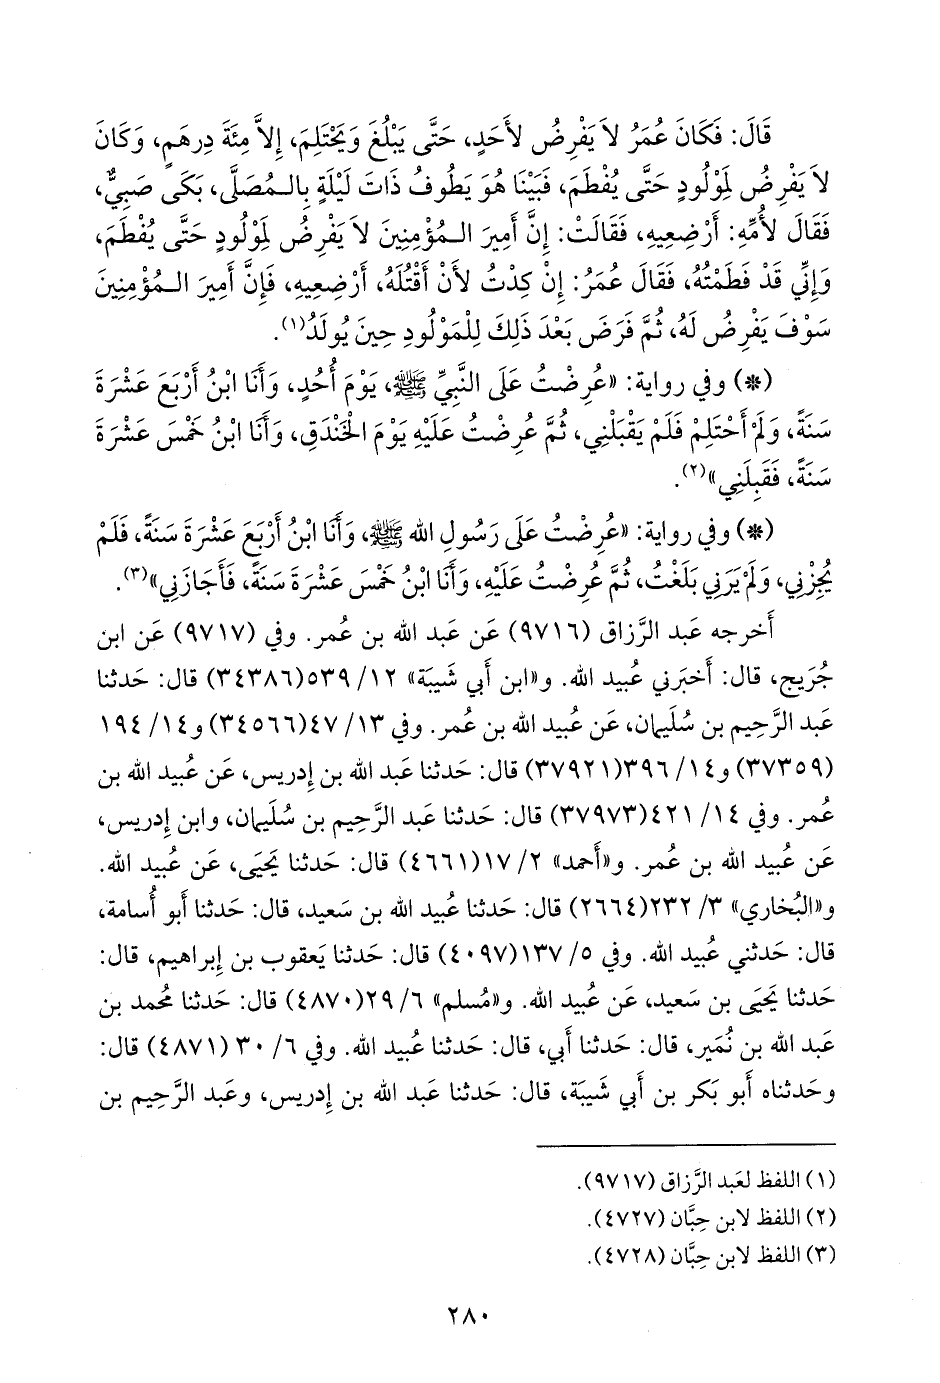 قَالَ: فَكَانَ عُمَرُ لاَ يَفْرِضُ لأَحَدٍ، حَتَّى يَبْلُغَ وَيَحْتَلِمَ، إِلاَّ مِئَةَ دِرهَمٍ، وَكَانَ
لاَ يَفْرِضُ لِمَوْلُودٍ حَتَّى يُفْطَمَ، فَبَيْنَا هُوَ يَطُوفُ ذَاتَ لَيْلَةٍ بِالـمُصَلَّى، بَكَى صَبِيٌّ،
فَقَالَ لأُمِّهِ: أَرْضِعِيهِ، فَقَالَتْ: إِنَّ أَمِيرَ الـمُؤْمِنِينَ لاَ يَفْرِضُ لِمَوْلُودٍ حَتَّى يُفْطَمَ،
وَإِنِّي قَدْ فَطَمْتُهُ، فَقَالَ عُمَرُ: إِنْ كِدْتُ لأَنْ أَقْتُلَهُ، أَرْضِعِيهِ، فَإِنَّ أَمِيرَ الـمُؤْمِنِينَ
سَوْفَ يَفْرِضُ لَهُ، ثُمَّ فَرَضَ بَعْدَ ذَلِكَ لِلْمَوْلُودِ حِينَ يُولَدُ(١).
(*) وفي رواية: «عُرِضْتُ عَلَى النَّبِيِّ ﷺ، يَوْمَ أُحُدٍ، وَأَنَا ابْنُ أَرْبَعَ عَشْرَةَ
سَنَةً، وَلَمْ أَحْتَلِمْ فَلَمْ يَقْبَلْنِي، ثُمَّ عُرِضْتُ عَلَيْهِ يَوْمَ الخَنْدَقِ، وَأَنَا ابْنُ خَمْسَ عَشْرَةَ
سَنَةً، فَقَبِلَنِي»(٢).
(*) وفي رواية: «عُرِضْتُ عَلَى رَسُولِ الله ﷺ، وَأَنَا ابْنُ أَرْبَعَ عَشْرَةَ سَنَةً، فَلَمْ
يُجِزْنِي، وَلَمْ يَرَنِي بَلَغْتُ، ثُمَّ عُرِضْتُ عَلَيْهِ، وَأَنَا ابْنُ خَمْسَ عَشْرَةَ سَنَةً، فَأَجَازَنِي»(٣).
أَخرجه عَبد الرَّزاق (٩٧١٦) عَن عَبد الله بن عُمر. وفي (٩٧١٧) عَن ابن
جُرَيج، قال: أَخبَرني عُبيد الله. و«ابن أَبي شَيبَة» ١٢/ ٥٣٩(٣٤٣٨٦) قال: حَدثنا
عَبد الرَّحِيم بن سُلَيمان، عَن عُبيد الله بن عُمر. وفي ١٣/ ٤٧(٣٤٥٦٦) و١٤/ ١٩٤
(٣٧٣٥٩) و١٤/ ٣٩٦(٣٧٩٢١) قال: حَدثنا عَبد الله بن إِدريس، عَن عُبيد الله بن
عُمر. وفي ١٤/ ٤٢١(٣٧٩٧٣) قال: حَدثنا عَبد الرَّحيم بن سُلَيمان، وابن إِدريس،
عَن عُبيد الله بن عُمر. و«أَحمد» ٢/ ١٧(٤٦٦١) قال: حَدثنا يَحيَى، عَن عُبيد الله.
و«البُخاري» ٣/ ٢٣٢(٢٦٦٤) قال: حَدثنا عُبيد الله بن سَعيد، قال: حَدثنا أَبو أُسامة،
قال: حَدثني عُبيد الله. وفي ٥/ ١٣٧(٤٠٩٧) قال: حَدثنا يَعقوب بن إِبراهيم، قال:
حَدثنا يَحيَى بن سَعيد، عَن عُبيد الله. و«مُسلم» ٦/ ٢٩(٤٨٧٠) قال: حَدثنا مُحمد بن
عَبد الله بن نُمَير، قال: حَدثنا أَبي، قال: حَدثنا عُبيد الله. وفي ٦/ ٣٠ (٤٨٧١) قال:
وحَدثناه أَبو بَكر بن أَبي شَيبَة، قال: حَدثنا عَبد الله بن إِدريس، وعَبد الرَّحيم بن
(١) اللفظ لعَبد الرَّزاق (٩٧١٧).
(٢) اللفظ لابن حِبَّان (٤٧٢٧).
(٣) اللفظ لابن حِبَّان (٤٧٢٨).
٢٨٠